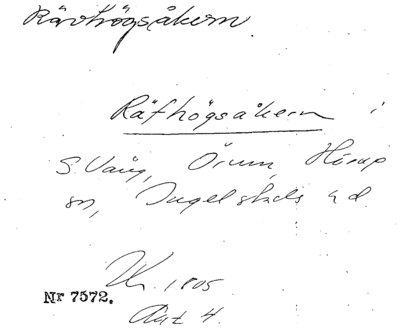 Rävhögsåkern
Räfhögsåkern i
S. Vång, Örum, Hörup
sn, Ingelstads hd.
1805
Nr 7572. Akt 4.